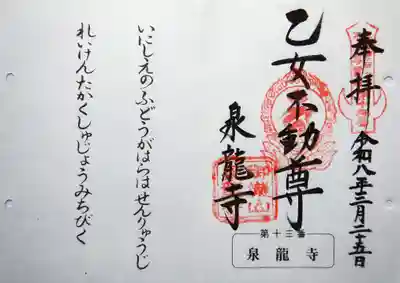 奉拝
令和八年三月二十五日
乙女不動尊
泉龍寺
第十三番
泉龍寺
いにしえのふどうがはらはせんりゅうじ
れいけんたかくしゅじょうみちびく